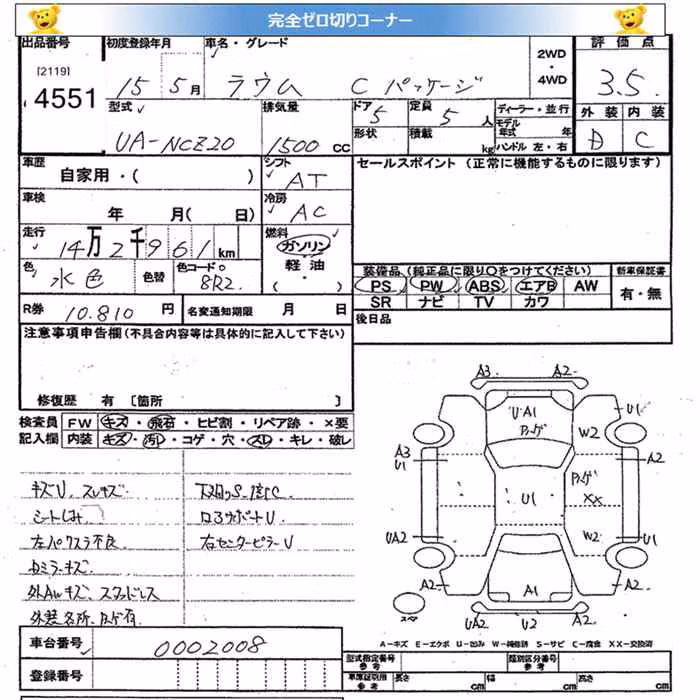 完全ゼロ切りコーナー
出品番号 初度登録年月 車名・グレード 2WD・4WD 評価点
[2119]
4551
15 5月 ラウム C パッケージ 3.5
型式 排気量 ドア 定員 ディーラー・並行 外装 内装
UA-NCZ20 1500 CC 5 5人 モデル年式 年 D C
形状 積載 kg ハンドル 左・右
車歴 シフト セールスポイント (正常に機能するものに限ります)
自家用・( ) AT
車検 冷房
年 月( 日) AC
走行 燃料
14万2千961km ガソリン
色 色替 色コードo 軽油
水色 8R2 ・( )
装備品 (純正品に限り〇をつけてください) 新車保証書
PS PW ABS エアB AW 有・無
SR ナビ TV カワ
R券 10.810 円 名変通知期限 月 日 後日品
注意事項申告欄 (不具合内容等は具体的に記入して下さい)
修復歴 有 [箇所 ]
検査員 FW キズ・飛石・ヒビ割・リペア跡・×要
記入欄 内装 キズ・汚レ・コゲ・穴・スレ・キレ・破レ
キズU、スレキズ 下廻りS-信C
シートしみ ロアサポートU
左パワスラ不良 右センターピラーU
カミラーキズ
外AWキズ スタッドレス
外装名所、凹み有
A3 A2
U A1
U1
W2
A3
U1
A2
U1
XX
UA2
W2
A2
A2
A1
スペア
UA2 U2 A2
車台番号 0002008
A-キズ E-エクボ U-凹み W-補修跡 S-サビ C-腐食 XX-交換済
登録番号
型式指定番号 参考 類別区分番号 参考
車庫証明用 参考 長さ cm 幅 cm 高さ cm